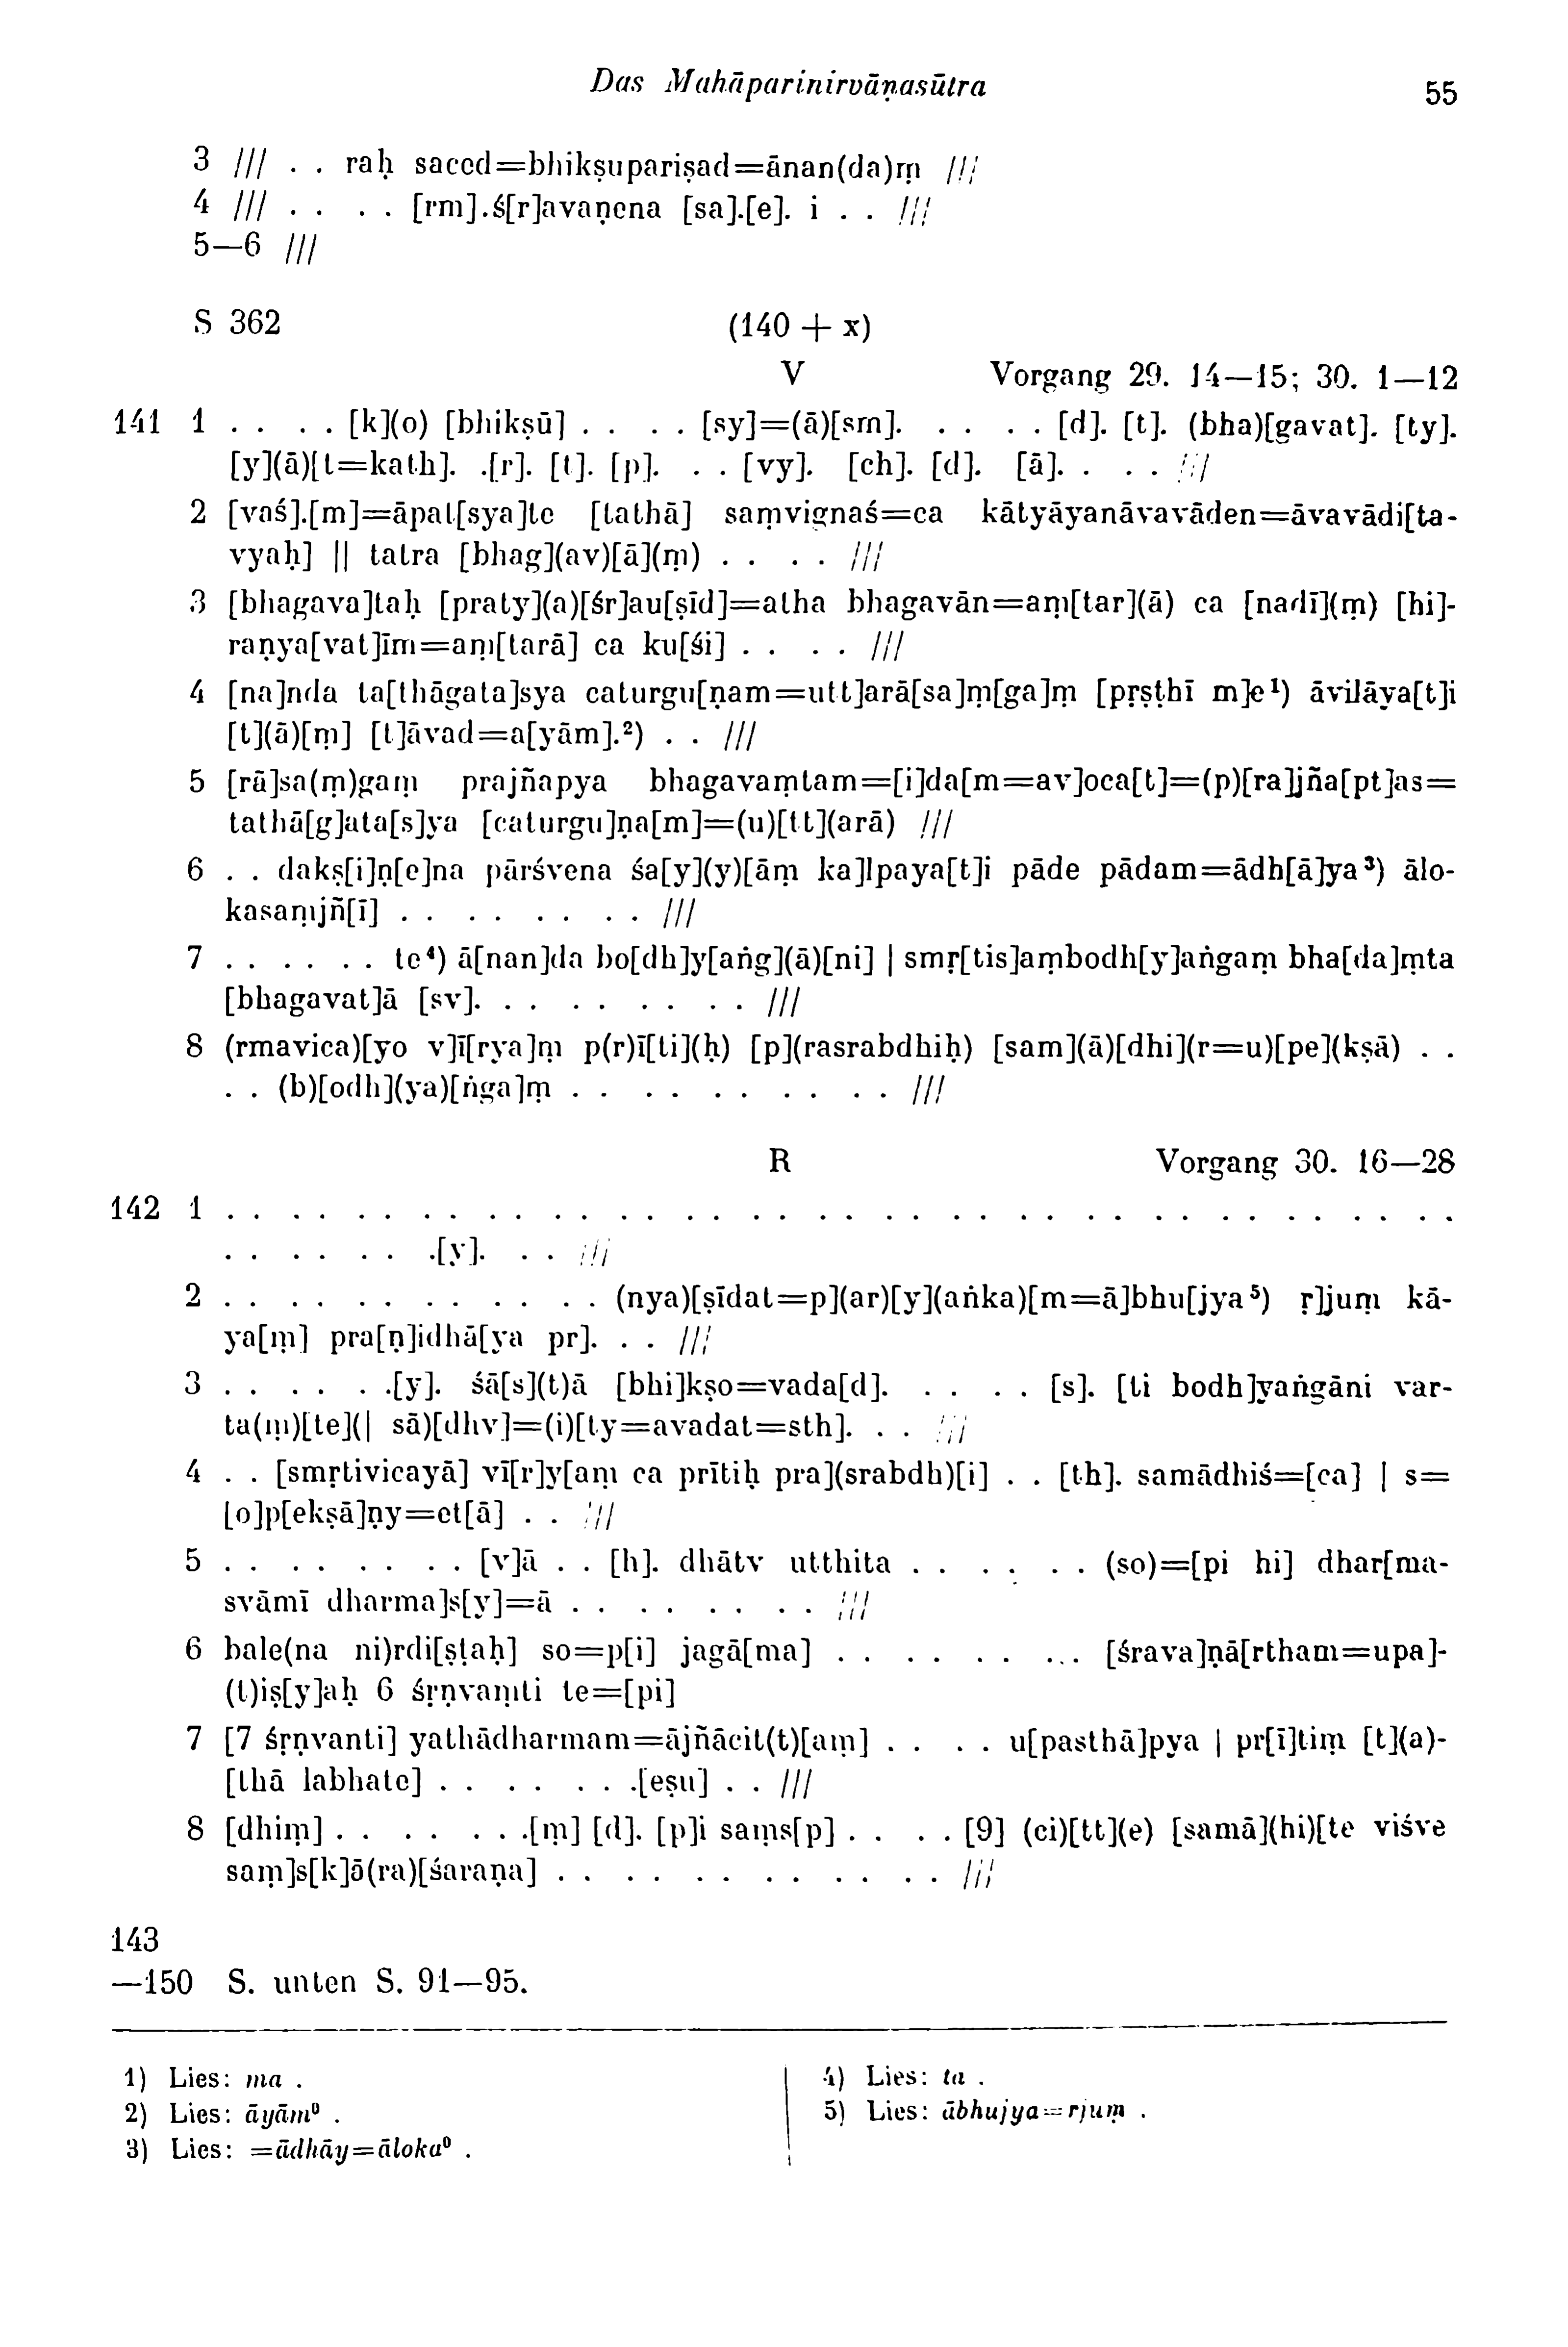 Das Mahāparinirvāṇasūtra 55
3 /// . . raḥ saced=bhikṣupariṣad=ānan(da)ṃ ///
4 /// . . . . [rm].ś[r]avaṇena [sa].[e]. i . . ///
5—6 ///
S 362 (140 + x)
V Vorgang 29. 14—15; 30. 1—12
141 1 . . . . [k](o) [bhikṣū] . . . . [sy]=(ā)[sm]. . . . . [d]. [t]. (bha)[gavat]. [ty].
[y](ā)[t=kath]. .[r]. [t]. [p]. . . [vy]. [ch]. [d]. [ā]. . . . ///
2 [vaś].[m]=āpat[sya]te [tathā] saṃvignaś=ca kātyāyanāvavāden=āvavādi[ta-
vyaḥ] || tatra [bhag](av)[ā](ṃ) . . . . ///
3 [bhagava]taḥ [praty](a)[śr]au[ṣīd]=atha bhagavān=aṃ[tar](ā) ca [nadī](ṃ) [hi]-
raṇya[vat]īm=aṃ[tarā] ca ku[śi] . . . . ///
4 [na]nda ta[thāgata]sya caturgu[ṇam=utt]arā[sa]ṃ[ga]ṃ [pṛṣṭhī m]e¹) āvilāya[t]i
[t](ā)[ṃ] [t]āvad=a[yām].²) . . ///
5 [rā]sa(ṃ)gaṃ prajñapya bhagavaṃtam=[i]da[m=av]oca[t]=(p)[ra]jña[pt]as=
tathā[g]ata[s]ya [caturgu]ṇa[m]=(u)[tt](arā) ///
6 . . dakṣ[i]ṇ[e]na pārśvena śa[y](y)[āṃ ka]lpaya[t]i pāde pādam=ādh[ā]ya³) ālo-
kasaṃjñ[ī] . . . . . . . . ///
7 . . . . . . te⁴) ā[nan]da bo[dh]y[aṅg](ā)[ni] | smṛ[tis]aṃbodh[y]aṅgaṃ bha[da]ṃta
[bhagavat]ā [sv]. . . . . . . . . ///
8 (rmavica)[yo v]ī[rya]ṃ p(r)ī[ti](ḥ) [p](rasrabdhiḥ) [sam](ā)[dhi](r=u)[pe](kṣā) . .
. . (b)[odh](ya)[ṅga]ṃ . . . . . . . . . . ///
R Vorgang 30. 16—28
142 1 . . . . . . . . . . . . . . . . . . . . . . . . . . . . . . . . . . . . . .
. . . . . . .[y]. . . ///
2 . . . . . . . . . . . . (nya)[ṣīdat=p](ar)[y](aṅka)[m=ā]bhu[jya⁵) ṛ]juṃ kā-
ya[ṃ] pra[ṇ]idhā[ya pr]. . . ///
3 . . . . . .[y]. śā[s](t)ā [bhi]kṣo=vada[d]. . . . . [s]. [ti bodh]yaṅgāni var-
ta(ṃ)[te](| sā)[dhv]=(i)[ty=avadat=sth]. . . ///
4 . . [smṛtivicayā] vī[r]y[aṃ ca prītiḥ pra](srabdh)[i] . . [th]. samādhiś=[ca] | s=
[o]p[ekṣā]ṇy=et[ā] . . ///
5 . . . . . . . . [v]ā . . [h]. dhātv utthita . . . . . . (so)=[pi hi] dhar[ma-
svāmī dharma]s[y]=ā . . . . . . . . ///
6 bale(na ni)rdi[ṣṭaḥ] so=p[i] jagā[ma] . . . . . . . . . [śrava]ṇā[rtham=upa]-
(t)iṣ[y]aḥ 6 śṛṇvaṃti te=[pi]
7 [7 śṛṇvanti] yathādharmam=ājñācit(t)[aṃ] . . . . u[pasthā]pya | pr[ī]tiṃ [t](a)-
[thā labhate] . . . . . . .[eṣu] . . ///
8 [dhiṃ] . . . . . . .[ṃ] [d]. [p]i saṃs[p] . . . . [9] (ci)[tt](e) [samā](hi)[te viśve
saṃ]s[k]ā(ra)[śaraṇa] . . . . . . . . . . . . ///
143
—150 S. unten S. 91—95.
1) Lies: ma .
2) Lies: āyām⁰ .
3) Lies: =ādhāy=āloka⁰ .
4) Lies: ta .
5) Lies: ābhujya=rjuṃ .